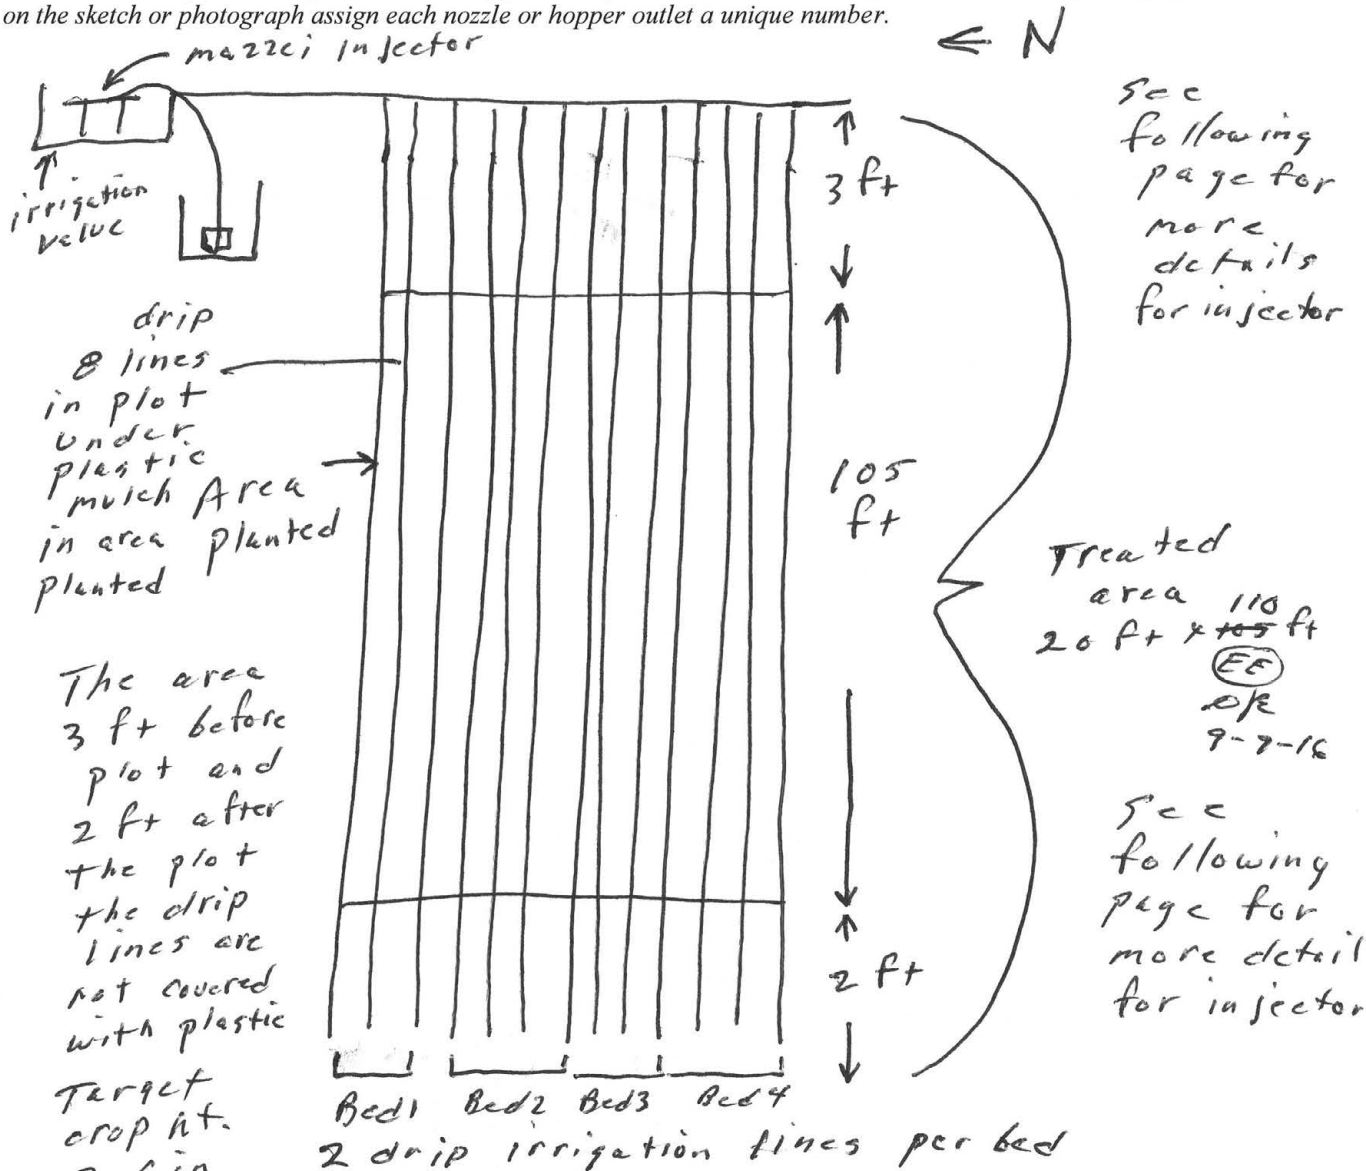 on the sketch or photograph assign each nozzle or hopper outlet a unique number.
← N
mazzei injector
irrigation
valve
3 ft
See
following
page for
more
details
for injector
drip
8 lines
in plot
under
plastic
mulch
in area
planted
Area
planted
105
ft
Treated
area
110
20 ft x 105 ft
EE
The area
3 ft before
plot and
2 ft after
the plot
the drip
lines are
not covered
with plastic
2 ft
See
following
page for
more detail
for injector
Bed1 Bed2 Bed3 Bed4
Target
crop ht.
2 drip irrigation lines per bed